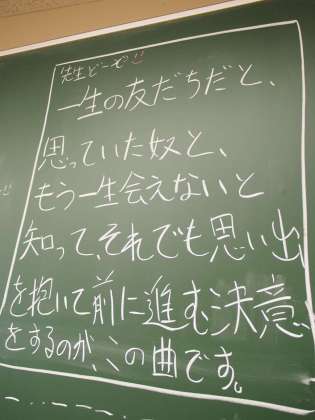 先生どーぞ!!
一生の友だちだと、
思っていた奴と、
もう一生会えないと
知って、それでも思い出
を抱いて前に進む決意
をするのが、この曲です。